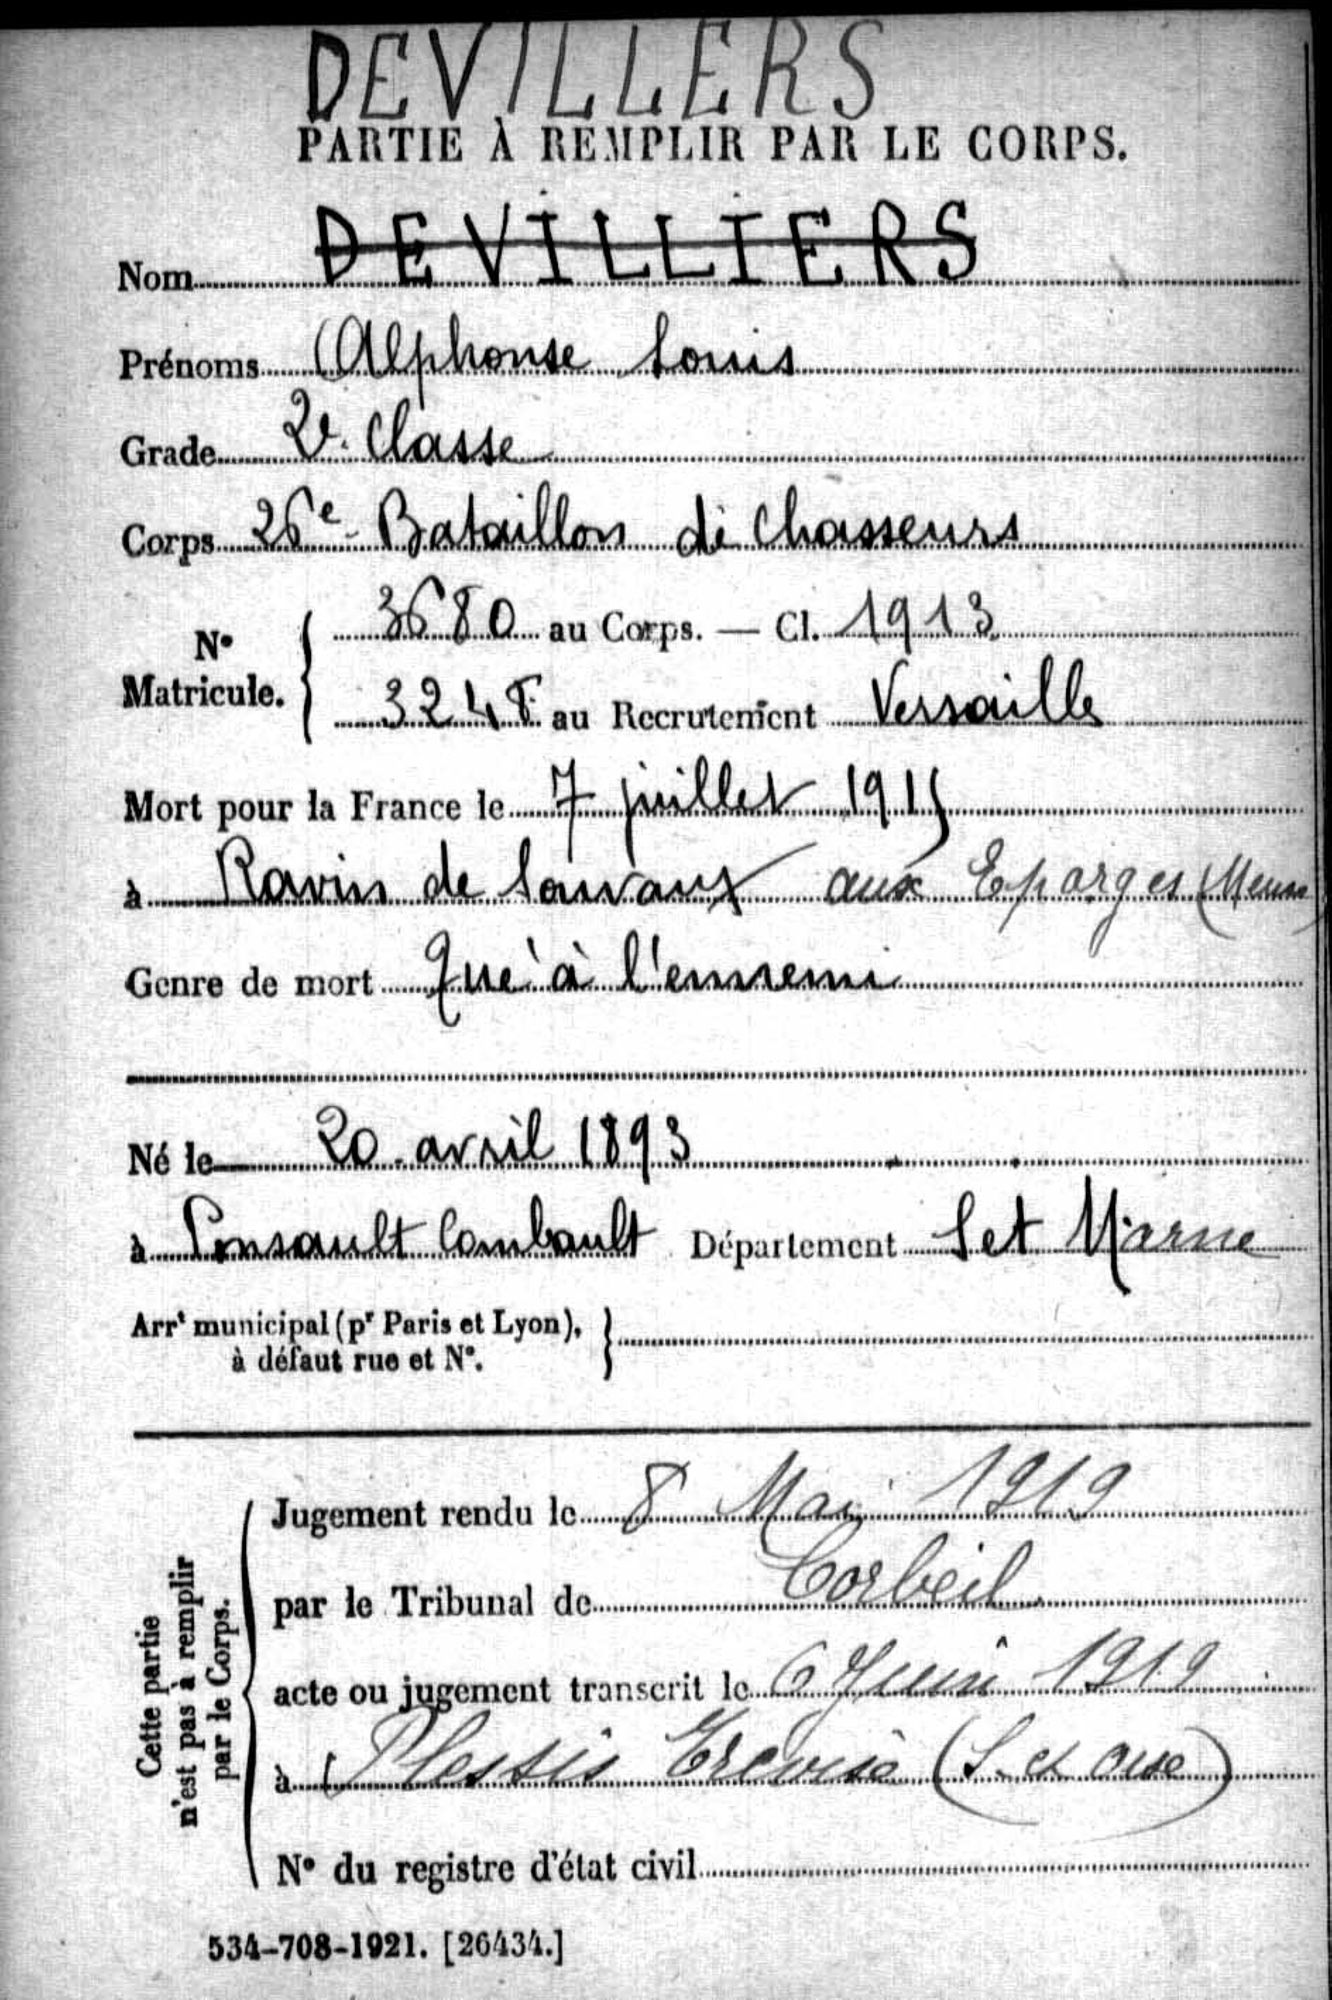 DEVILLERS
PARTIE À REMPLIR PAR LE CORPS.
Nom DEVILLIERS
Prénoms Alphonse Louis
Grade 2e Classe
Corps 26e Bataillon de Chasseurs
N° Matricule. 3680 au Corps. — Cl. 1913
3248 au Recrutement Versaille
Mort pour la France le 7 juillet 1915
à Ravin de Sonvaux aux Eparges (Meuse)
Genre de mort Tué à l'ennemi
Né le 20 avril 1893
à Ponsault Combault Département S et Marne
Arrt municipal (pr Paris et Lyon),
à défaut rue et N°.
Cette partie
n'est pas à remplir
par le Corps.
Jugement rendu le 8 Mai 1919
par le Tribunal de Corbeil
acte ou jugement transcrit le 6 Juin 1919
à Plessis Trévise (S. et oise)
N° du registre d'état civil
534-708-1921. [26434.]